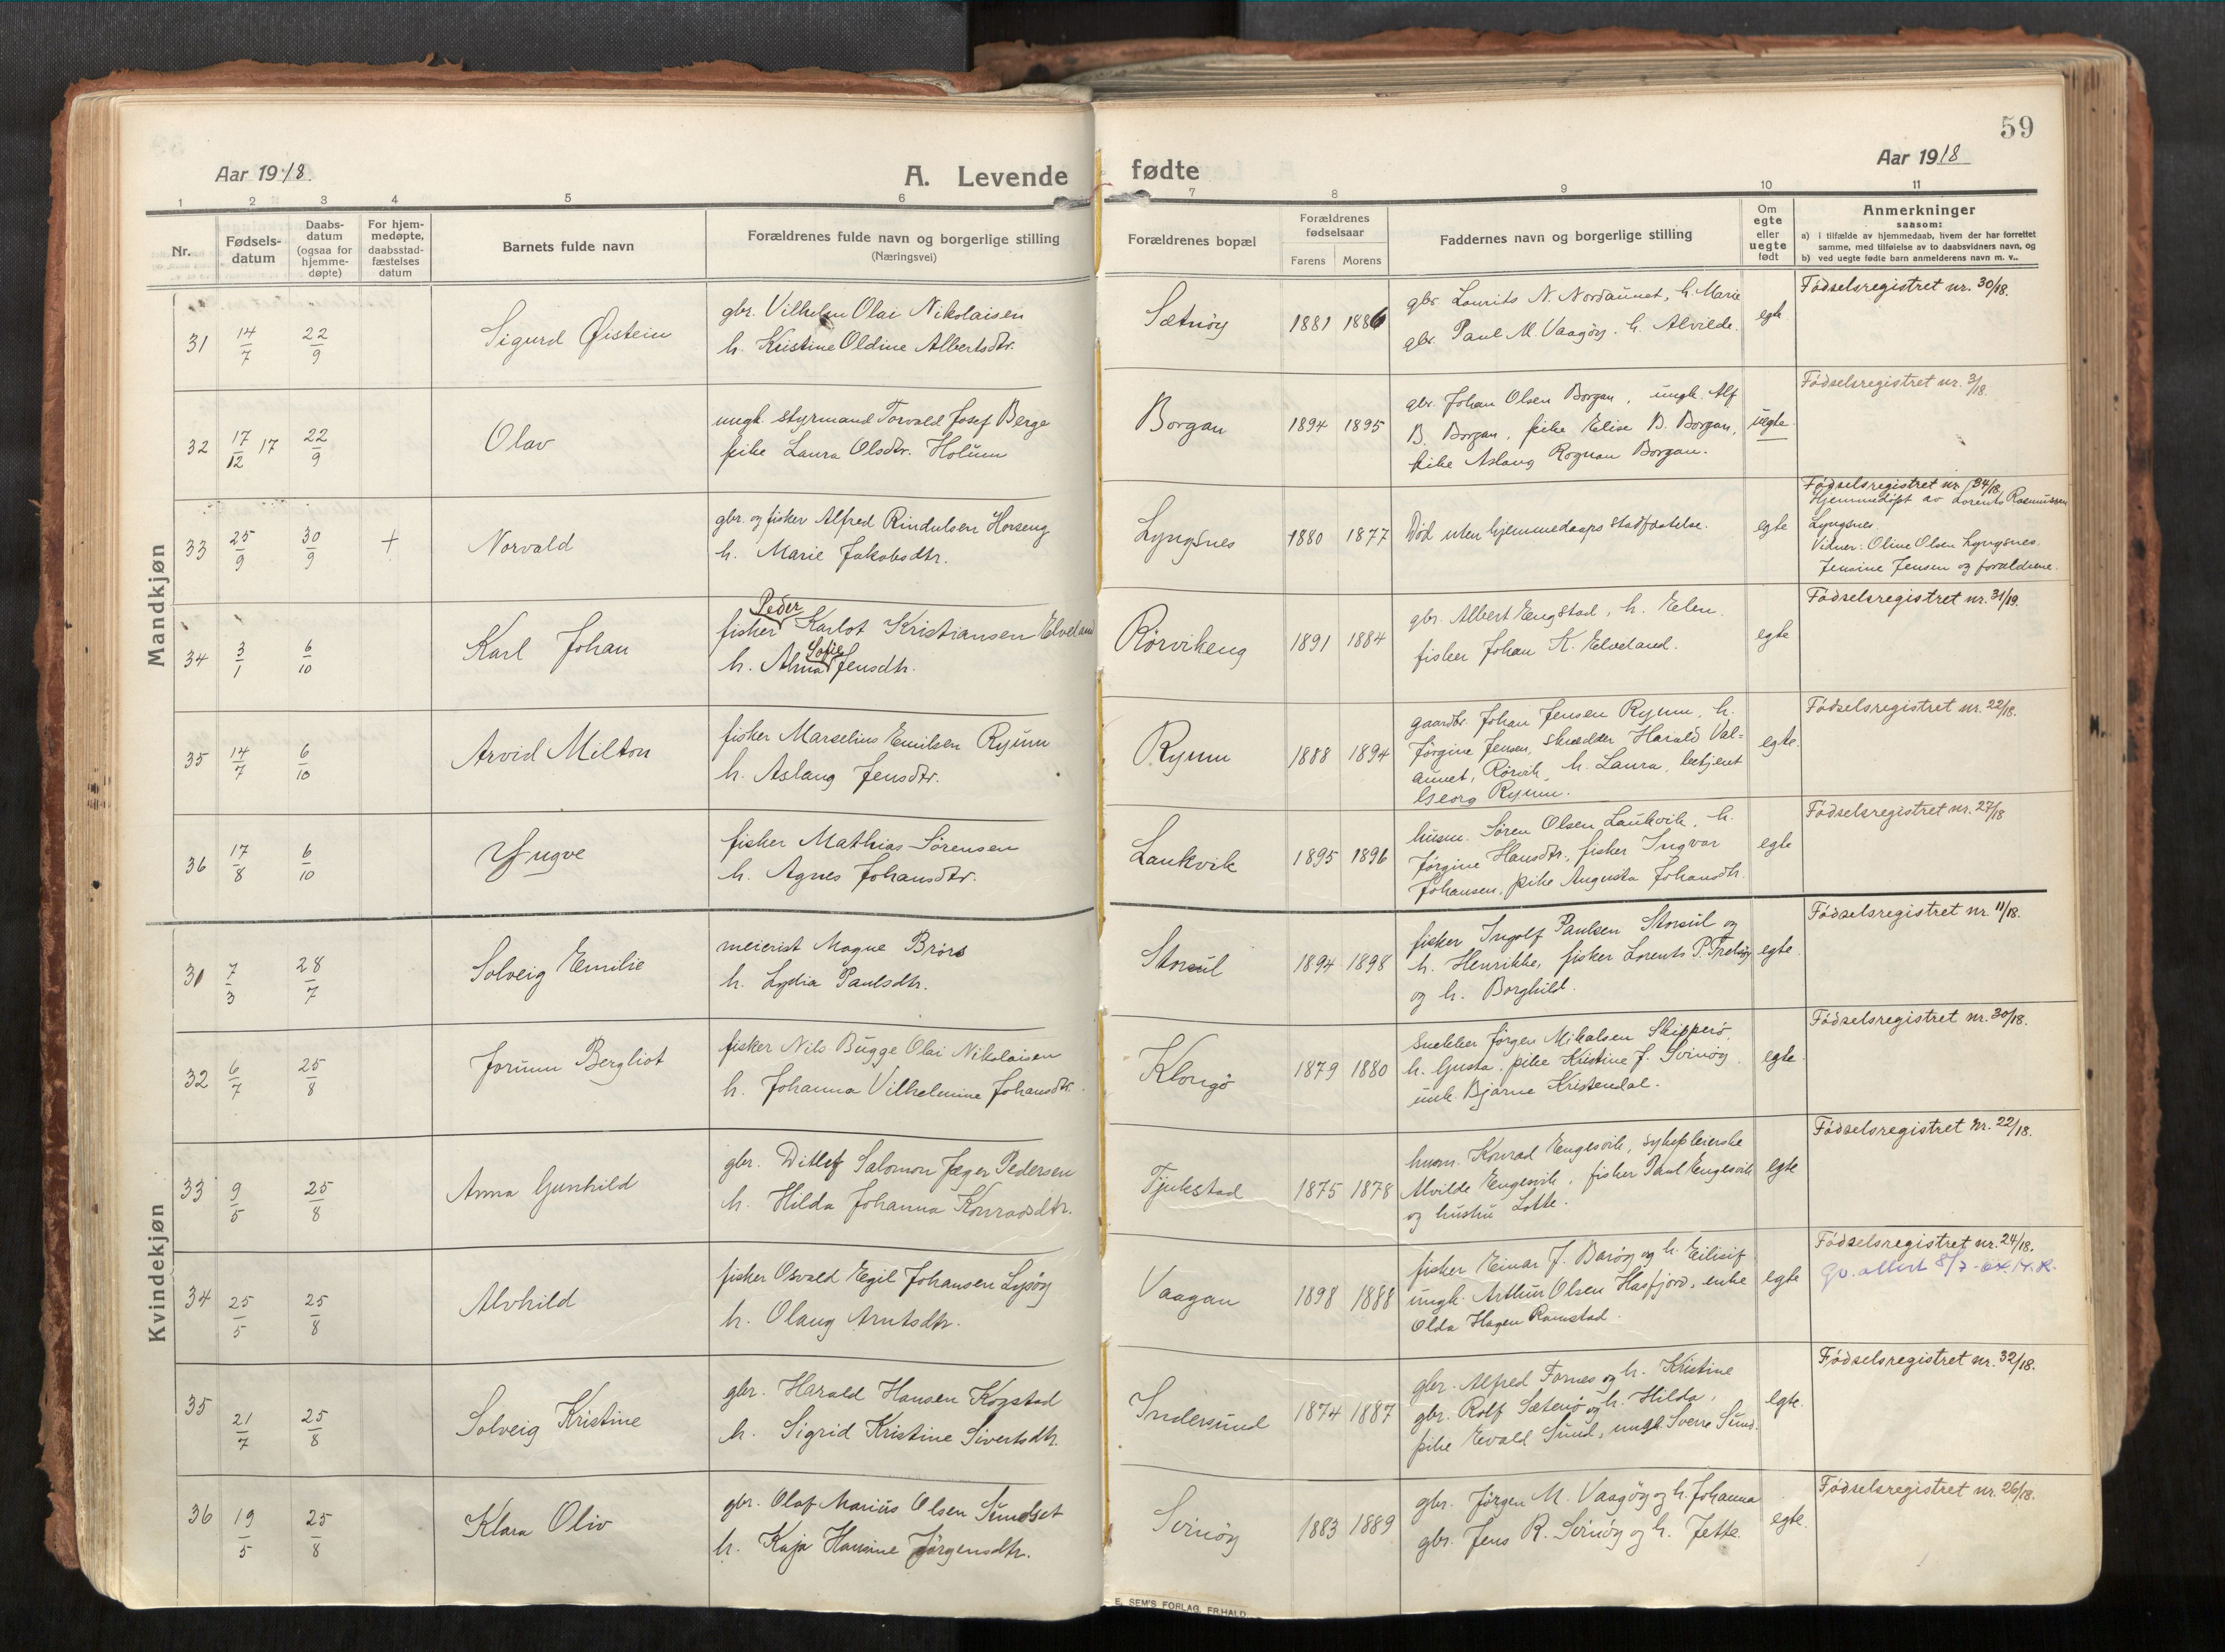 59
Aar 1918.
A. Levende fødte
Aar 1918
1 2 3 4 5 6 7 8 9 10 11
Nr.
Fødsels-
datum
Daabs-
datum
(ogsaa for
hjemme-
døpte)
For hjem-
medøpte,
daabsstad-
fæstelses
datum
Barnets fulde navn
Forældrenes fulde navn og borgerlige stilling
(Næringsvei)
Forældrenes bopæl
Forældrenes
fødselsaar
Farens Morens
Faddernes navn og borgerlige stilling
Om
egte
eller
uegte
født
Anmerkninger
saasom:
a) i tilfælde av hjemmedaab, hvem der har forrettet
samme, med tilføielse av to daabsvidners navn, og
b) ved uegte fødte barn anmelderens navn m. v..
Mandkjøn
31 14/7 22/9 Sigurd Øistein
gbr. Vilhelm Olai Nikolaisen
h. Kristine Oldine Albertsdtr.
Sætnøy 1881 1886
gbr. Laurits N. Nordaunet, h. Marie
gbr. Paul M. Vaagøy. h. Alvilde.
egte
Fødselsregistret nr. 30/18.
32 17/12 17 22/9 Olav
ungk. styrmand Torvald Josef Berge
pike Laura Olsdtr. Holum
Borgan 1894 1895
gbr. Johan Olsen Borgan, ungk. Alf
B. Borgan, pike Elise B. Borgan,
pike Aslaug Rognan Borgan.
uegte.
Fødselsregistret nr. 3/18.
33 25/9 30/9 + Norvald
gbr. og fisker Alfred Rindulsen Horseng
h. Marie Jakobsdtr.
Lyngsnes 1880 1877
Død uten hjemmedaaps stadfæstelse.
egte
Fødselsregistret nr. 34/18.
Hjemmedøpt av Lorents Rasmussen
Lyngsnes.
Vidner: Oline Olsen Lyngsnes.
Jensine Jensen og forældrene.
34 3/1 6/10 Karl Johan
Peder
fisker Karlot Kristiansen Elveland
Sofie
h. Alma Jensdtr.
Rørvikeng 1891 1884
gbr. Albert Engstad, h. Elen.
fisker Johan K. Elveland.
egte
Fødselsregistret nr. 31/19.
35 14/7 6/10 Arvid Milton
fisker Marselius Emilsen Ryum
h. Aslaug Jensdtr.
Ryum 1888 1894
gaardbr. Johan Jensen Ryum, h.
Jørgine Jensen, skrædder Harald Val=
aunet, Rørvik, h. Laura, betjent
Georg Ryum.
egte.
Fødselsregistret nr. 22/18.
36 17/8 6/10 Yngve
fisker Mathias Sørensen
h. Agnes Johansdtr.
Laukvik 1895 1896
husm. Søren Olsen Laukvik, h.
Jørgine Hansdtr., fisker Ingvar
Johansen, pike Augusta Johansdtr.
egte
Fødselsregistret nr. 27/18
Kvindekjøn
31 7/3 28/7 Solveig Emilie
meierist Magne Brørs
h. Lydia Paulsdtr.
Storsul 1894 1898
fisker Ingolf Paulsen Storsul og
h. Henrikke, fisker Lorents P.
og h. Borghild.
egte.
Fødselsregistret nr. 11/18.
32 6/7 25/8 Jorunn Bergliot
fisker Nils Bugge Olai Nikolaisen
h. Johanna Vilhelmine Johansdtr.
Klongø 1879 1880
snekker Jørgen Mikalsen Skipperø,
h. Gusta, pike Kristine J. Svinøy,
unk. Bjarne Kristendal.
egte.
Fødselsregistret nr. 30/18.
33 9/5 25/8 Anna Gunhild
gbr. Ditlef Salomon Jæger Pedersen
h. Hilda Johanna Konradsdtr.
Tjukstad 1875 1878
husm. Konrad Engesvik, sykepleierske
Alvilde Engesvik, fisker Paul Engesvik
og hustru Lotte.
egte
Fødselsregistret nr. 22/18.
34 25/5 25/8 Alvhild
fisker Osvald Egil Johansen Lysøy
h. Olaug Arntsdtr.
Vaagan 1898 1888
fisker Einar J. Barøy og h. Eilisif
ungk. Arthur Olsen Hasfjord, enke
Olda Hagen Ramstad.
egte
Fødselsregistret nr. 24/18.
35 21/7 25/8 Solveig Kristine
gbr. Harald Hansen Kogstad
h. Sigrid Kristine Sivertsdtr.
Indersund 1874 1887
gbr. Alfred Fornes og h. Kristine
gbr. Rolf Sætenø og h. Hilda,
pike Evald Sund, ungk. Sverre Sund.
egte.
Fødselsregistret nr. 32/18.
36 19/5 25/8 Klara Oliv
gbr. Olaf Marius Olsen Sundset
h. Kaja Hansine Jørgensdtr.
Svinøy 1883 1889
gbr. Jørgen M. Vaagøy og h. Johanna
gbr. Jens R. Svinøy og h. Jette.
egte.
Fødselsregistret nr. 26/18.
E. SEM'S FORLAG, FR.HALD